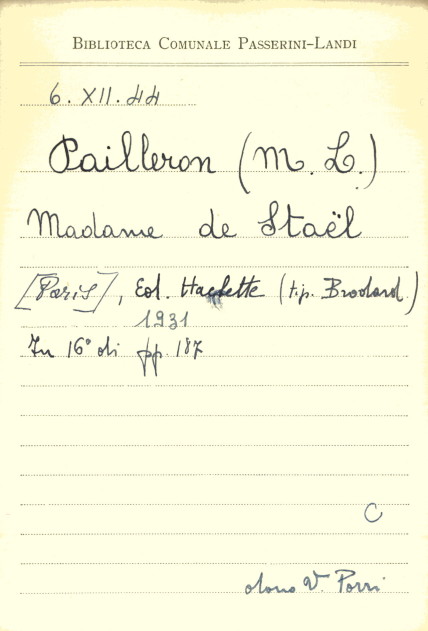 BIBLIOTECA COMUNALE PASSERINI-LANDI
6. XII. 44
Pailleron (M. L.)
Madame de Staël
[Paris], Ed. Hachette (tip. Brodard)
1931
In 16° di pp. 187
C
dono V. Porri